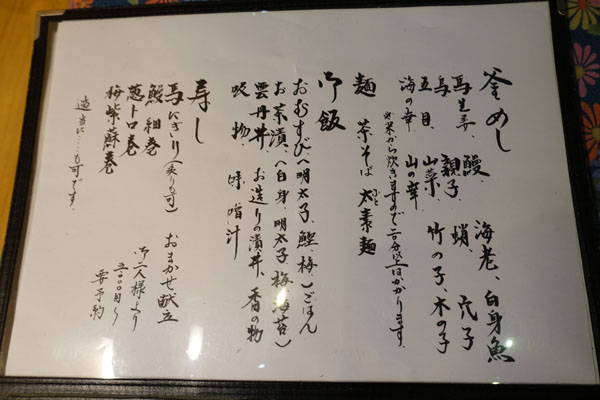 釜めし
鰻、海老、白身魚
馬生姜、親子、蛸、穴子
鳥、山菜、竹の子、木の子
五目、山の幸
海の幸
※米から炊きますので二〇分以上はかかります。
麺 茶そば 太素麺
御飯
おむすび(明太子、鰹、梅、)ごはん
お茶漬、(白身、明太子、梅、海苔)
雲丹丼 お造りの漬丼、香の物
吸物、味噌汁
寿し
馬にぎり(炙りも可)
鰻細巻
葱トロ巻
梅紫蘇巻
適当に…も可です。
おまかせ献立
御二人様より
五〇〇〇円より
要予約